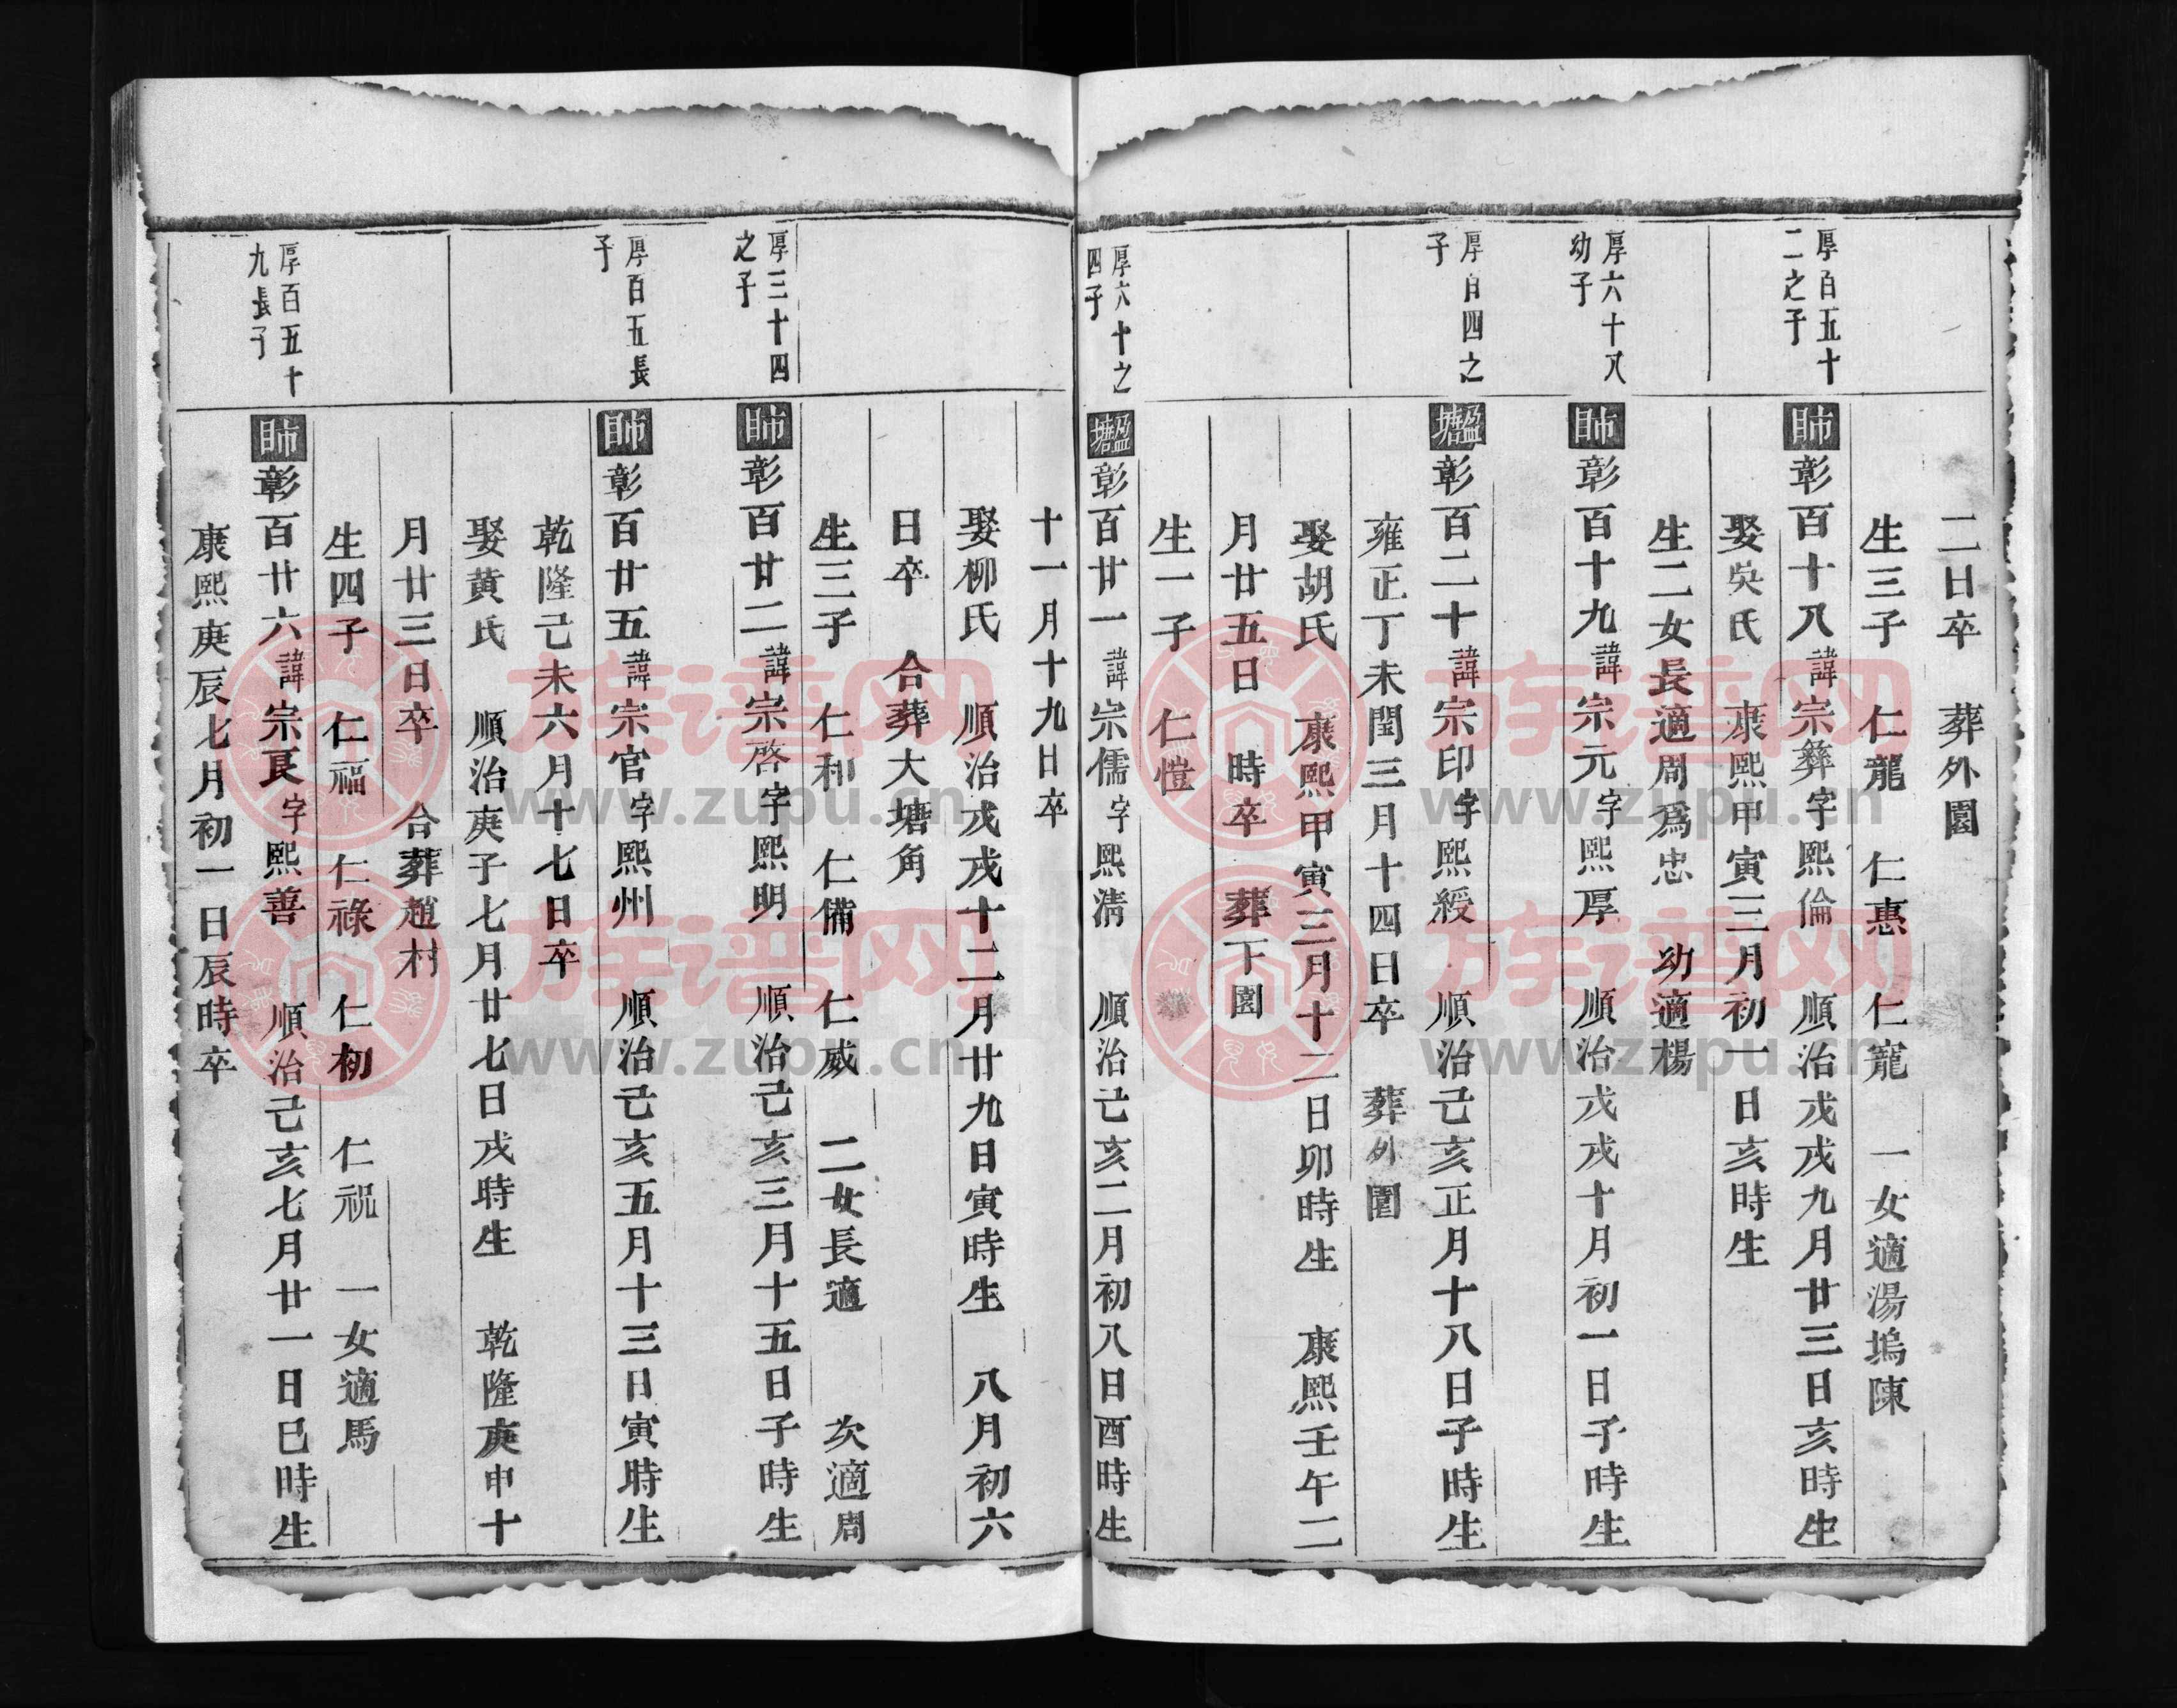 二日卒　葬外園
生三子　仁龍　仁惠　仁寵　一女適湯塢陳
厚百五十
二之子
彰百十八諱宗彝字熙倫　順治戊戌九月廿三日亥時生
娶吳氏　康熙甲寅三月初一日亥時生
生二女長適周爲忠　幼適楊
厚六十八
幼子
彰百十九諱宗元字熙厚　順治戊戌十月初一日子時生
厚百四之
子
彰百二十諱宗印字熙綬　順治己亥正月十八日子時生
雍正丁未閏三月十四日卒　葬外園
娶胡氏　康熙甲寅三月十二日卯時生　康熙壬午二
月廿五日　時卒　葬下園
生一子　仁愷
厚六十之
四子
彰百廿一諱宗儒字熙清　順治己亥二月初八日酉時生
十一月十九日卒
娶柳氏　順治戊戌十二月廿九日寅時生　八月初六
日卒　合葬大塘角
生三子　仁和　仁備　仁威　二女長適　次適周
厚三十四
之子
彰百廿二諱宗啓字熙明　順治己亥三月十五日子時生
厚百五長
子
彰百廿五諱宗官字熙州　順治己亥五月十三日寅時生
乾隆己未六月十七日卒
娶黃氏　順治庚子七月廿七日戌時生　乾隆庚申十
月廿三日卒　合葬趙村
生四子　仁福　仁祿　仁初　仁祝　一女適馬
厚百五十
九長子
彰百廿六諱宗良字熙善　順治己亥七月廿一日巳時生
康熙庚辰七月初一日辰時卒
族谱网
www.zupu.cn
族谱网
www.zupu.cn
族谱网
www.zupu.cn
族谱网
www.zupu.cn